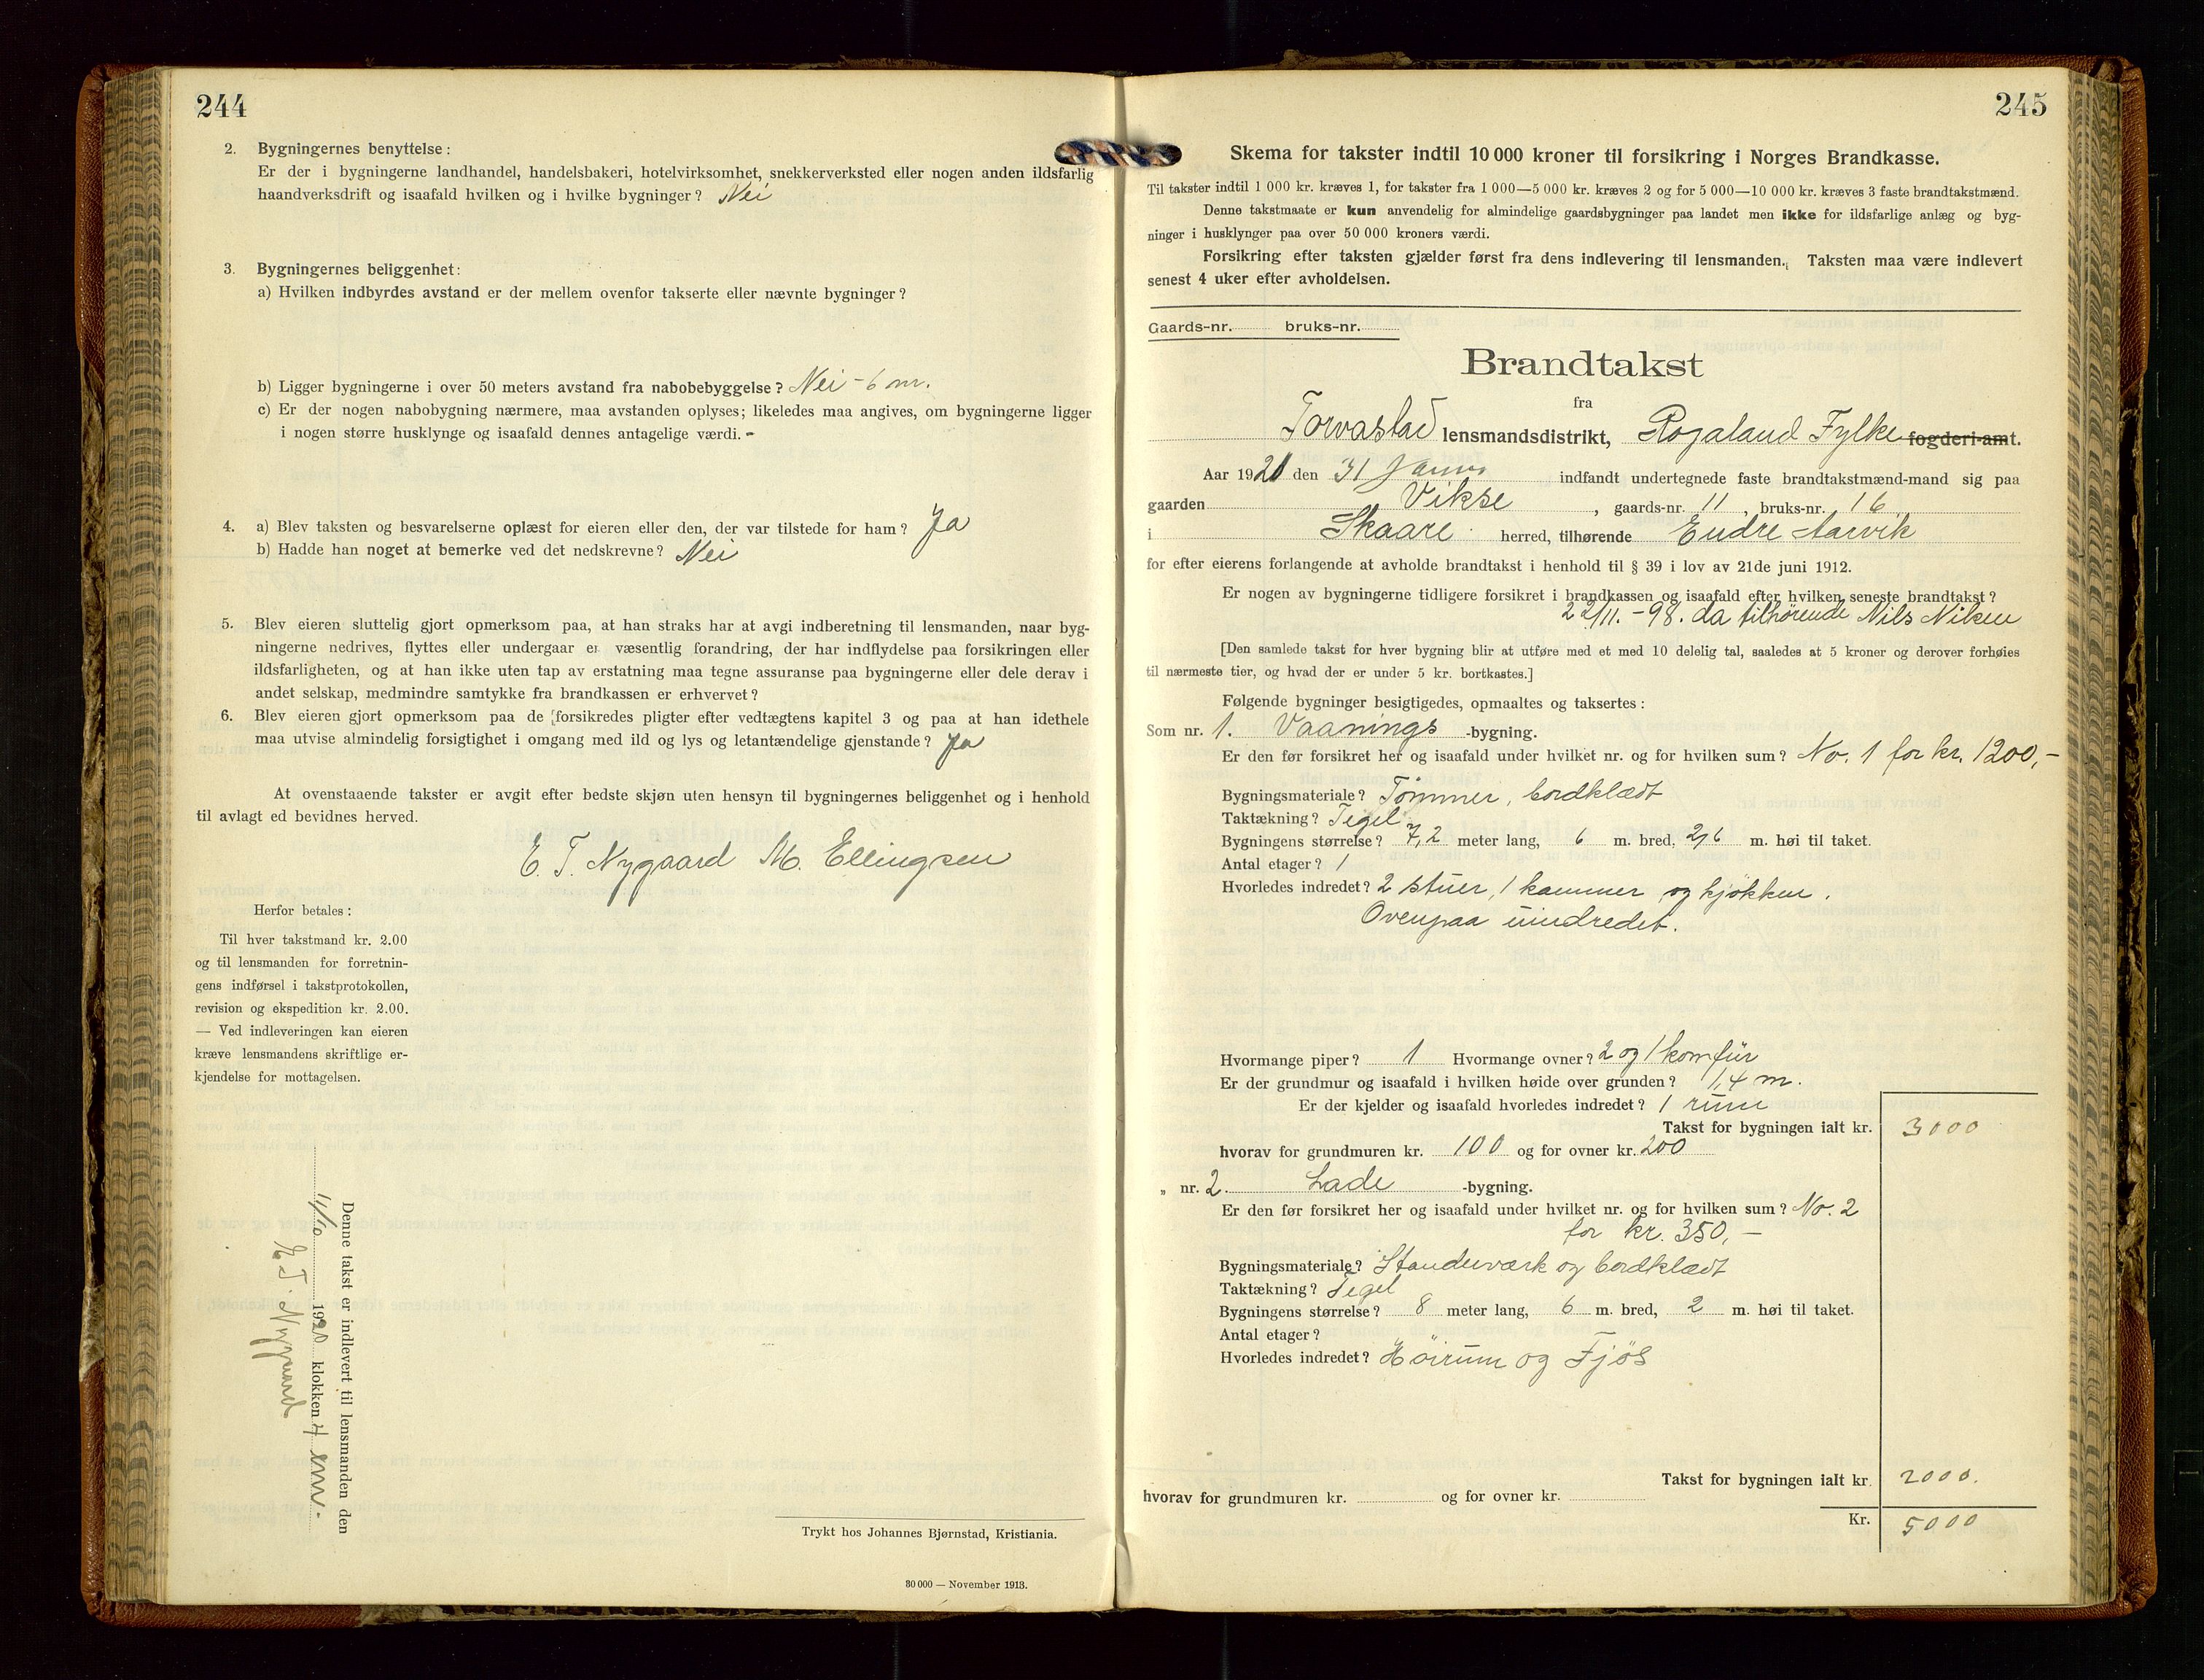 244
2. Bygningernes benyttelse:
Er der i bygningerne landhandel, handelsbakeri, hotelvirksomhet, snekkerverksted eller nogen anden ildsfarlig
haandverksdrift og isaafald hvilken og i hvilke bygninger? Nei
3. Bygningernes beliggenhet:
a) Hvilken indbyrdes avstand er der mellem ovenfor takserte eller nævnte bygninger?
b) Ligger bygningerne i over 50 meters avstand fra nabobebyggelse? Nei - 6 m.
c) Er der nogen nabobygning nærmere, maa avstanden oplyses; likeledes maa angives, om bygningerne ligger
i nogen større husklynge og isaafald dennes antagelige værdi. -
4. a) Blev taksten og besvarelserne oplæst for eieren eller den, der var tilstede for ham? Ja
b) Hadde han noget at bemerke ved det nedskrevne? Nei
5. Blev eieren sluttelig gjort opmerksom paa, at han straks har at avgi indberetning til lensmanden, naar byg-
ningerne nedrives, flyttes eller undergaar en væsentlig forandring, der har indflydelse paa forsikringen eller
ildsfarligheten, og at han ikke uten tap av erstatning maa tegne assuranse paa bygningerne eller dele derav i
andet selskap, medmindre samtykke fra brandkassen er erhvervet?
6. Blev eieren gjort opmerksom paa de [forsikredes pligter efter vedtægtens kapitel 3 og paa at han idethele
maa utvise almindelig forsigtighet i omgang med ild og lys og letantændelige gjenstande? Ja
At ovenstaaende takster er avgit efter bedste skjøn uten hensyn til bygningernes beliggenhet og i henhold
til avlagt ed bevidnes herved.
E. T. Nygaard M. Ellingsen
Herfor betales:
Til hver takstmand kr. 2.00
og til lensmanden for forretnin-
gens indførsel i takstprotokollen,
revision og ekspedition kr. 2.00.
— Ved indleveringen kan eieren
kræve lensmandens skriftlige er-
kjendelse for mottagelsen.
Denne takst er indlevert til lensmanden den
11/10 1920 klokken 4 em -
E. T. Nygaard
Trykt hos Johannes Bjørnstad, Kristiania.
30 000 — November 1913.
245
Skema for takster indtil 10 000 kroner til forsikring i Norges Brandkasse.
Til takster indtil 1 000 kr. kræves 1, for takster fra 1 000—5 000 kr. kræves 2 og for 5 000—10 000 kr. kræves 3 faste brandtakstmænd.
Denne takstmaate er kun anvendelig for almindelige gaardsbygninger paa landet men ikke for ildsfarlige anlæg og byg-
ninger i husklynger paa over 50 000 kroners værdi.
Forsikring efter taksten gjælder først fra dens indlevering til lensmanden. Taksten maa være indlevert
senest 4 uker efter avholdelsen.
Gaards-nr. bruks-nr.
Brandtakst
fra
Torvastad lensmandsdistrikt, Rogaland Fylke fogderi-amt.
Aar 1921 den 31 Januar indfandt undertegnede faste brandtakstmænd-mand sig paa
gaarden Vikse, gaards-nr. 11, bruks-nr. 16
i Skaare herred, tilhørende Endre Aarvik
for efter eierens forlangende at avholde brandtakst i henhold til § 39 i lov av 21de juni 1912.
Er nogen av bygningerne tidligere forsikret i brandkassen og isaafald efter hvilken seneste brandtakst?
22/11.-98. da tilhørende Nils
[Den samlede takst for hver bygning blir at utføre med et med 10 delelig tal, saaledes at 5 kroner og derover forhøies
til nærmeste tier, og hvad der er under 5 kr. bortkastes.]
Følgende bygninger besigtigedes, opmaaltes og taksertes:
Som nr. 1. Vaanings -bygning.
Er den før forsikret her og isaafald under hvilket nr. og for hvilken sum? No. 1 for kr. 1200,-
Bygningsmateriale? Tømmer, bordklædt
Taktækning? Tegel
Bygningens størrelse? 7,2 meter lang, 6 m. bred, 2,6 m. høi til taket.
Antal etager? 1
Hvorledes indredet? 2 stuer, 1 kammer og kjøkken.
Ovenpaa uindredet.
Hvormange piper? 1 Hvormange ovner? 2 og 1 komfür
Er der grundmur og isaafald i hvilken høide over grunden? 1,4 m.
Er der kjelder og isaafald hvorledes indredet? 1 rum
Takst for bygningen ialt kr. 3000
hvorav for grundmuren kr. 100 og for ovner kr. 200
„ nr. 2. Lade -bygning.
Er den før forsikret her og isaafald under hvilket nr. og for hvilken sum? No. 2
for kr. 350,-
Bygningsmateriale? Standerværk og bordklædt
Taktækning? Tegel
Bygningens størrelse? 8 meter lang, 6 m. bred, 2 m. høi til taket.
Antal etager?
Hvorledes indredet? Høirum og Fjøs
Takst for bygningen ialt kr. 2000.
hvorav for grundmuren kr. og for ovner kr.
Kr. 5000